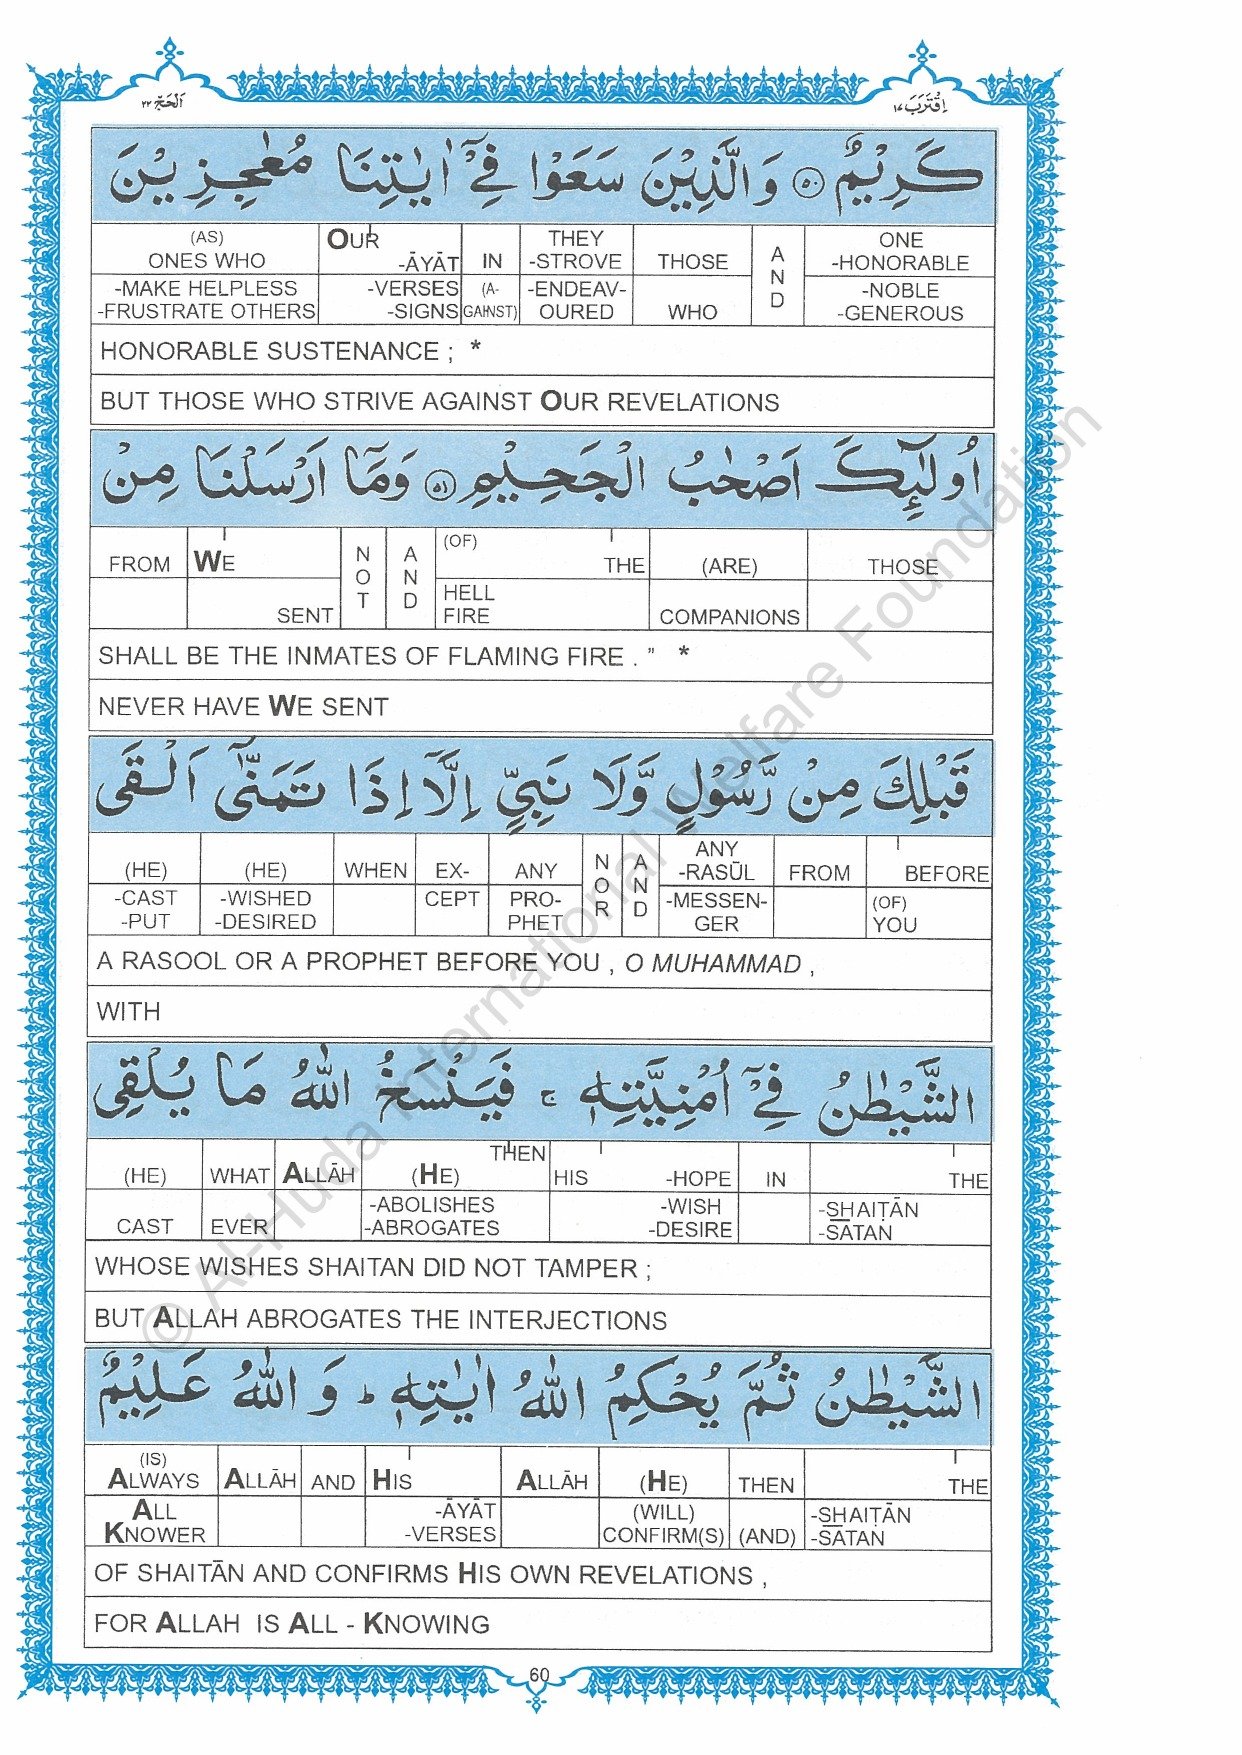 اَلْحَجّ ٢٢
اِقْتَرَبَ ١٧
كَرِيْمٌ ۝٥٠ وَالَّذِيْنَ سَعَوْا فِيْٓ اٰيٰتِنَا مُعٰجِزِيْنَ
(AS) OUR THEY A ONE
ONES WHO -ĀYĀT IN -STROVE THOSE N -HONORABLE
-MAKE HELPLESS -VERSES (A- -ENDEAV- D -NOBLE
-FRUSTRATE OTHERS -SIGNS GAINST) OURED WHO -GENEROUS
HONORABLE SUSTENANCE ; *
BUT THOSE WHO STRIVE AGAINST OUR REVELATIONS
اُولٰٓئِكَ اَصْحٰبُ الْجَحِيْمِ ۝٥١ وَمَآ اَرْسَلْنَا مِنْ
FROM WE NOT AND (OF) THE (ARE) THOSE
SENT HELL FIRE COMPANIONS
SHALL BE THE INMATES OF FLAMING FIRE . ” *
NEVER HAVE WE SENT
قَبْلِكَ مِنْ رَّسُوْلٍ وَّلَا نَبِيٍّ اِلَّآ اِذَا تَمَنّٰٓى اَلْقَى
(HE) (HE) WHEN EX- ANY NOR AND ANY -RASŪL FROM BEFORE
-CAST -WISHED CEPT PRO- -MESSEN- (OF)
-PUT -DESIRED PHET GER YOU
A RASOOL OR A PROPHET BEFORE YOU , O MUHAMMAD ,
WITH
الشَّيْطٰنُ فِيْٓ اُمْنِيَّتِهٖ ۚ فَيَنْسَخُ اللّٰهُ مَا يُلْقِى
THEN
(HE) WHAT ALLĀH (HE) HIS -HOPE IN THE
-ABOLISHES -WISH -SHAIṬĀN
CAST EVER -ABROGATES -DESIRE -SATAN
WHOSE WISHES SHAITAN DID NOT TAMPER ;
BUT ALLAH ABROGATES THE INTERJECTIONS
الشَّيْطٰنُ ثُمَّ يُحْكِمُ اللّٰهُ اٰيٰتِهٖ ؕ وَاللّٰهُ عَلِيْمٌ
(IS)
ALWAYS ALLĀH AND HIS ALLĀH (HE) THEN THE
ALL -ĀYĀT (WILL) -SHAIṬĀN
KNOWER -VERSES CONFIRM(S) (AND) -SATAN
OF SHAITĀN AND CONFIRMS HIS OWN REVELATIONS ,
FOR ALLAH IS ALL - KNOWING
60
© Al-Huda International Welfare Foundation